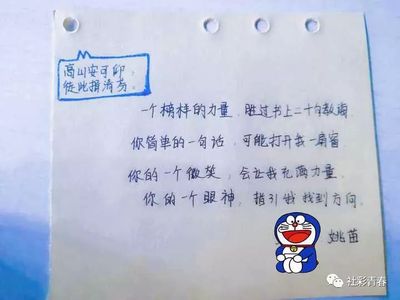 高山安可仰，
徒此揖清芬。
一个榜样的力量，胜过书上二十句教诲
你简单的一句话，可能打开我一扇窗
你的一个微笑，会让我充满力量
你的一个眼神，指引我找到方向.
姚苗
社彩青春